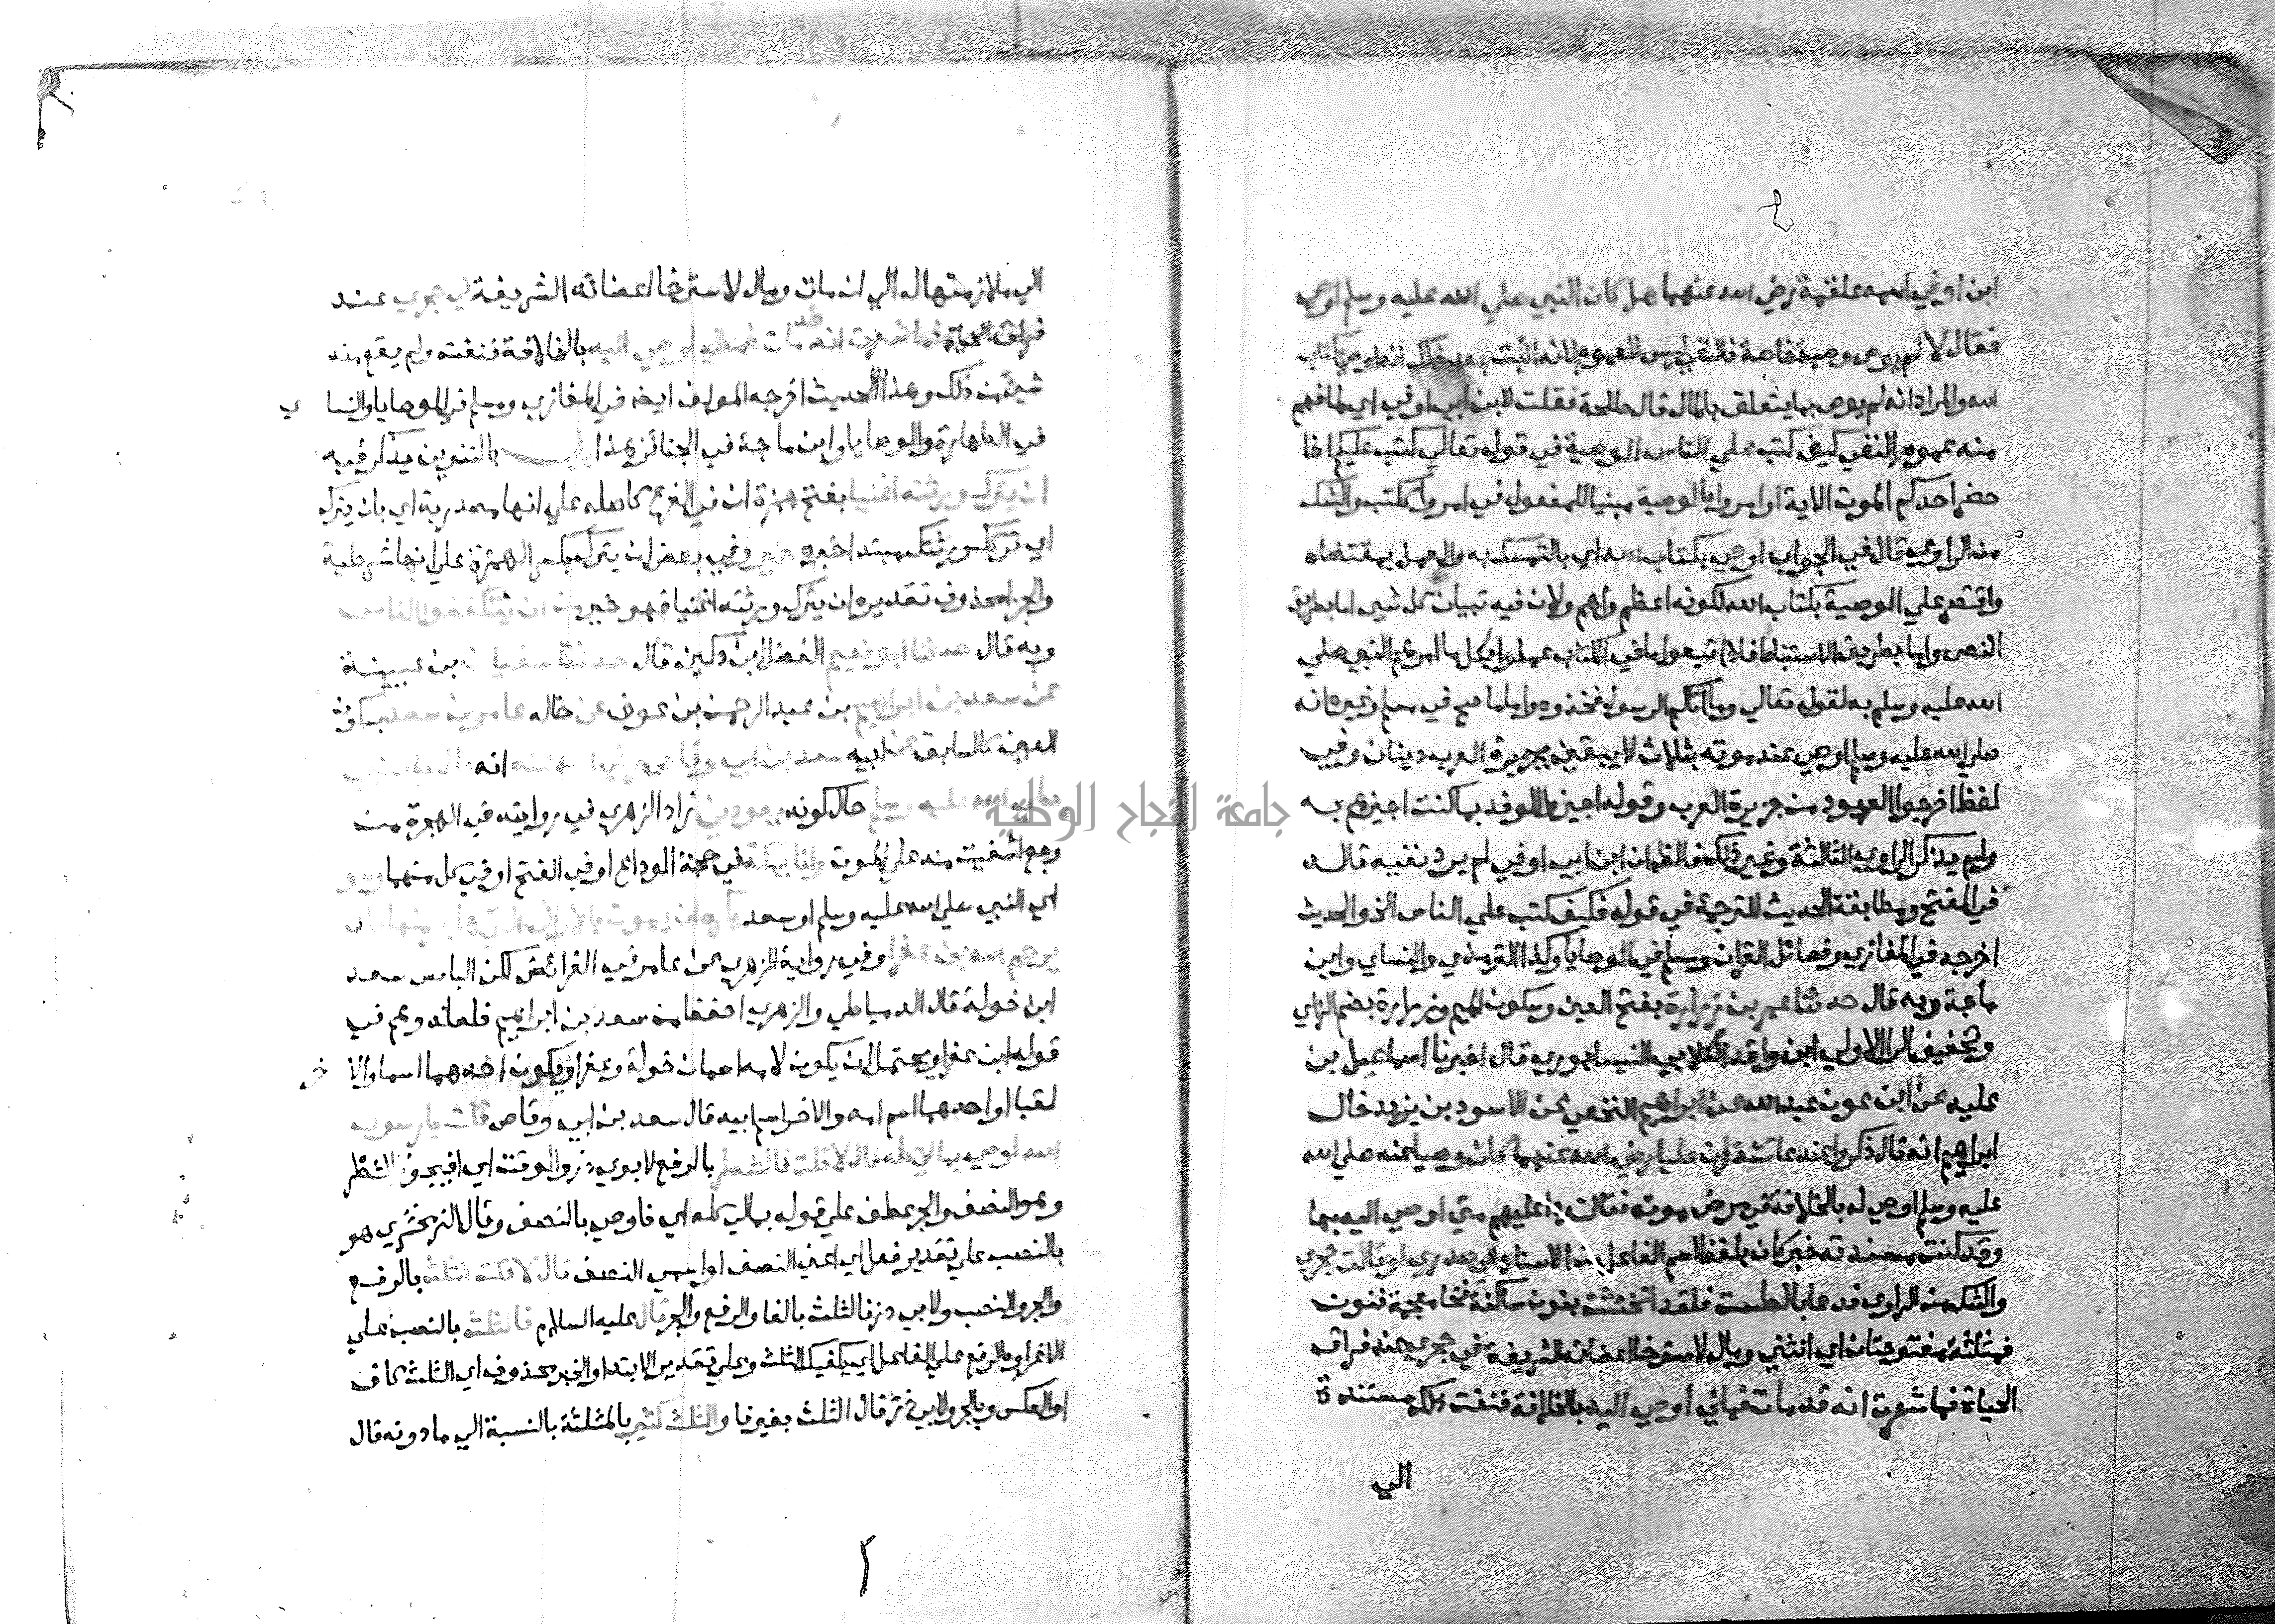 ابن اوفي اسمه علقمة رضي الله عنهما هل كان النبي صلي الله عليه وسلم اوصي
فقال لا لم يوص وصية خاصة فالنفي ليس للعموم لانه اثبت بعد ذلك انه اوصي بكتاب
الله والمراد انه لم يوص بما يتعلق بالمال قال طلحة فقلت لابن ابي اوفي اي لما فهم
منه عموم النفي كيف كتب علي الناس الوصية في قوله تعالي كتب عليكم اذا
حضر احدكم الموت الاية او امروا بالوصية مبنيا للمفعول في امروا وكتب والشك
من الراوي قال في الجواب اوصي بكتاب الله اي بالتمسك به والعمل بمقتضاه
واقتصر علي الوصية بكتاب الله لكونه اعظم واهم ولان فيه تبيان كل شي اما بطريق
النص واما بطريق الاستنباط فاذا تبعوا ما في الكتاب عملوا بكل ما امرهم النبي صلي
الله عليه وسلم به لقوله تعالي وما اتاكم الرسول فخذوه واما ما صح في مسلم وغيره انه
صلي الله عليه وسلم اوصي عند موته بثلاث لا يبقين بجزيرة العرب دينان وفي
لفظ اخرجوا اليهود من جزيرة العرب وقوله اجيزوا الوفد بما كنت اجيزهم به
ولم يذكر الراوي الثالثة وغير ذلك فالظاهر ان ابن ابي اوفي لم يرد نفيه قاله
في الفتح ومطابقة الحديث للترجمة في قوله فكيف كتب علي الناس الخ والحديث
اخرجه في المغازي وفضائل القران ومسلم في الوصايا وكذا الترمذي والنساي وابن
ماجة وبه قال حدثنا عمرو بن زرارة بفتح العين وسكون الميم وزرارة بضم الزاي
وتخفيف الرا الاولي ابن واقد الكلابي النيسابوري قال اخبرنا اسماعيل بن
علية عن ابن عون عبد الله عن ابراهيم النخعي عن الاسود بن يزيد خال
ابراهيم انه قال ذكروا عند عائشة ان عليا رضي الله عنهما كان وصيا عنه صلي الله
عليه وسلم اوصي له بالخلافة في مرض موته فقالت ردا عليهم متي اوصي اليه بها
وقد كنت مسندته خبر كان بلفظ اسم الفاعل من الاسناد الي صدري او قالت حجري
والشك من الراوي فدعا بالطست فلقد انخنثت بنون ساكنة فخا معجمة فنون
فمثلثة مفتوحتان اي انثني ومال لاسترخا اعضائه الشريفة في حجري عند فراق
الحياة فما شعرت انه قد مات فمتي اوصي اليه بالخلافة فنفت ذلك مستندة
الي
الي ملازمتها له الي ان مات ومال لاسترخا اعضائه الشريفة في حجري عند
فراق الحياة فما شعرت انه قد مات فمتي اوصي اليه بالخلافة فنفته ولم يقع منه
شيئ من ذلك وهذا الحديث اخرجه المولف ايضا في المغازي ومسلم في الوصايا والنساي
في الطهارة والوصايا وابن ماجة في الجنائز هذا باب بالتنوين يذكر فيه
ان يترك ورثته اغنيا بفتح همزة ان في الفرع كاصله علي انها مصدرية اي بان يترك
اي تركك ورثتك مبتدا خبره خير وفي بعض ان يترك بكسر الهمزة علي انها شرطية
والجزا محذوف تقديره ان يترك ورثته اغنيا فهو خير من ان يتكففوا الناس
وبه قال حدثنا ابو نعيم الفضل ابن دكين قال حدثنا سفيان بن عيينة
عن سعد بن ابراهيم بن عبد الرحمن بن عوف عن خاله عامر بن سعد بسكون
العين كالسابق عن ابيه سعد بن ابي وقاص رضي الله عنه انه قال جا النبي
صلي الله عليه وسلم حال كونه يعودني زاد الزهري في روايته في الهجرة من
وجع اشفيت منه علي الموت وانا بمكة في حجة الوداع او في الفتح او في كل منهما وهو
اي النبي صلي الله عليه وسلم او سعد
يرحم الله ابن عفرا وفي رواية الزهري عن عامر في الفرائض لكن البائس سعد
ابن خولة قال الدمياطي والزهري احفظ من سعد بن ابراهيم فلعله وهم في
قوله ابن عفرا ويحتمل ان يكون لامه اسمان خولة وعفرا ويكون احدهما اسما والاخر
لقبا او احدهما اسم امه والاخر اسم ابيه قال سعد بن ابي وقاص قلت يا رسول
الله اوصي بمالي كله قال لا قلت فالشطر بالرفع لابوي ذر والوقت اي افيجوز الشطر
وهو النصف والجر عطف علي قوله بمالي كله اي فاوصي بالنصف وقال الزمخشري هو
بالنصب علي تقدير فعل اي اعني النصف او اوصي النصف قال لا قلت الثلث بالرفع
والجر والنصب ولابي ذر فالثلث بالفا والرفع والجر قال عليه السلام فالثلث بالنصب علي
الاغرا وبالرفع علي الفاعل اي يكفيك الثلث وعلي تقدير الابتدا والخبر محذوف اي الثلث كاف
او العكس وبالجر ولابي ذر قال الثلث بغير فا والثلث كثير بالمثلثة بالنسبة الي ما دونه قال
جامعة النجاح الوطنية